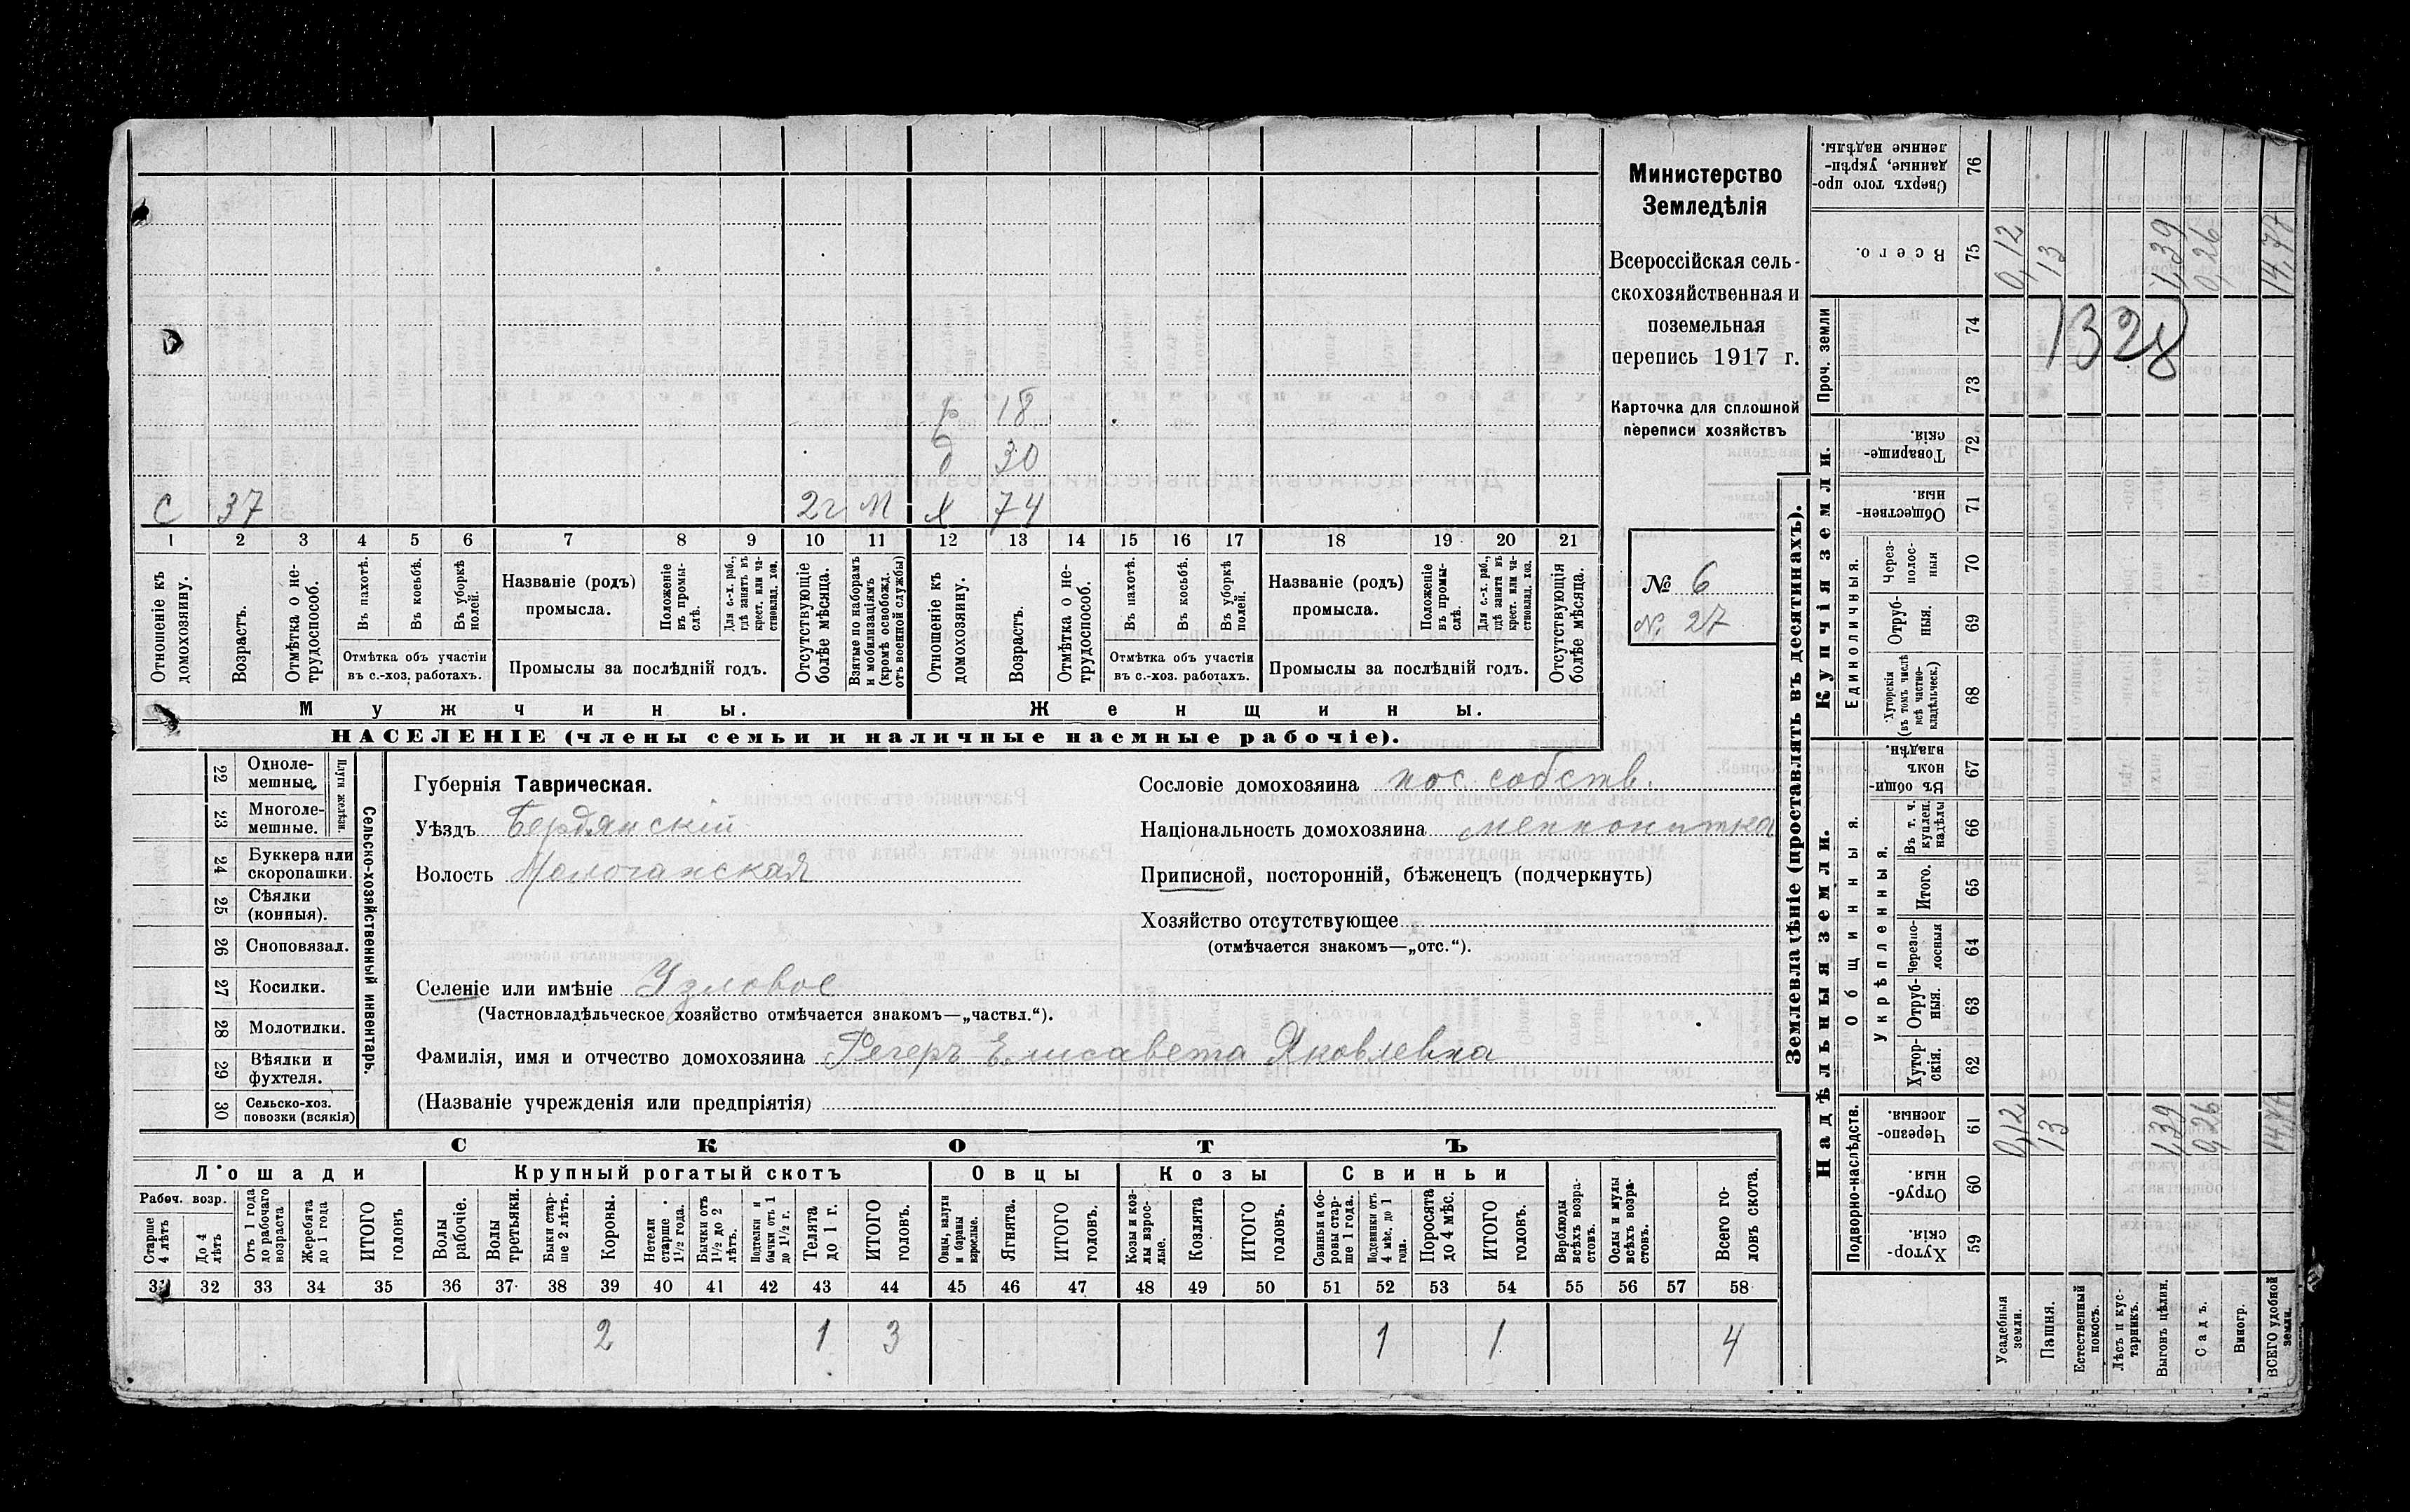 Министерство
Земледѣлія
Всероссійская сель-
скохозяйственная и
поземельная
перепись 1917 г.
Карточка для сплошной
переписи хозяйствъ
№ 6
№ 27
18
30
С 37 2г М Х 74
1 2 3 4 5 6 7 8 9 10 11 12 13 14 15 16 17 18 19 20 21
Отношеніе къ домохозяину.
Возрастъ.
Отмѣтка о не-трудоспособ.
Въ пахотѣ.
Въ косьбѣ.
Въ уборкѣ полей.
Отмѣтка объ участіи
въ с.-хоз. работахъ.
Названіе (родъ)
промысла.
Положеніе въ промы-слѣ.
Для с.-х. раб., гдѣ занятъ въ крест. или ча-стновлад. хоз.
Промыслы за послѣдній годъ.
Отсутствующіе болѣе мѣсяца.
Взятые по наборамъ и мобилизаціямъ (кромѣ освобожд. отъ военной службы)
Отношеніе къ домохозяину.
Возрастъ.
Отмѣтка о не-трудоспособ.
Въ пахотѣ.
Въ косьбѣ.
Въ уборкѣ полей.
Отмѣтка объ участіи
въ с.-хоз. работахъ.
Названіе (родъ)
промысла.
Положеніе въ промы-слѣ.
Для с.-х. раб., гдѣ занята въ крест. или ча-стновлад. хоз.
Промыслы за послѣдній годъ.
Отсутствующія болѣе мѣсяца.
Мужчины.
Женщины.
НАСЕЛЕНІЕ (члены семьи и наличные наемные рабочіе).
Сельско-хозяйственный инвентарь.
Плуги желѣзн.
22 Одноле-мешные.
23 Многоле-мешные.
24 Буккера или скоропашки.
25 Сѣялки (конныя).
26 Сноповязал.
27 Косилки.
28 Молотилки.
29 Вѣялки и фухтеля.
30 Сельско-хоз. повозки (всякія)
Губернія Таврическая.
Уѣздъ Бердянскій
Волость Молочанская
Селеніе или имѣніе Узловое
(Частновладѣльческое хозяйство отмѣчается знакомъ—„частвл.“).
Фамилія, имя и отчество домохозяина Регеръ Елисавета Яковлевна
(Названіе учрежденія или предпріятія)
Сословіе домохозяина пос. собств.
Національность домохозяина меннонитка
Приписной, посторонній, бѣженецъ (подчеркнуть)
Хозяйство отсутствующее
(отмѣчается знакомъ—„отс.“).
СКОТЪ
Лошади
Крупный рогатый скотъ
Овцы
Козы
Свиньи
Рабоч. возр.
Старше 4 лѣтъ
До 4 лѣтъ
Отъ 1 года до рабочаго возраста
Жеребята до 1 года
ИТОГО головъ
Волы рабочіе.
Волы третьяки.
Быки стар-ше 2 лѣтъ.
Коровы.
Нетели старше 1½ года.
Бычки отъ 1½ до 2 лѣтъ.
Подтелки и бычки отъ 1 до 1½ г.
Телята до 1 г.
ИТОГО головъ.
Овцы, валухи и бараны взрослые.
Ягнята.
ИТОГО головъ.
Козы и коз-лы взрос-лые.
Козлята
ИТОГО головъ.
Свиньи и бо-ровы стар-ше 1 года.
Подсвинки отъ 4 мѣс. до 1 года.
Поросята до 4 мѣс.
ИТОГО головъ.
Верблюды всѣхъ возра-стовъ.
Ослы и мулы всѣхъ возра-стовъ.
Всего го-ловъ скота.
31 32 33 34 35 36 37 38 39 40 41 42 43 44 45 46 47 48 49 50 51 52 53 54 55 56 57 58
2 1 3 1 1 4
Землевладѣніе (проставлять въ десятинахъ).
Надѣльныя земли.
Купчія земли.
Проч. земли
Подворно-наслѣдств.
Общинныя.
Укрѣпленныя.
Единоличныя.
Сверхъ того про-данные, укрѣп-ленные надѣлы. 76
Всего. 75
74
73
Товарище-скія. 72
Обществен-ныя. 71
Через-полос-ныя 70
Отруб-ныя. 69
Хуторскія (въ томъ числѣ всѣ частно-владѣльческ.) 68
Въ общи-номъ владѣн. 67
Въ т. ч. куплен. надѣлы 66
Итого. 65
Черезпо-лосныя 64
Отруб-ныя. 63
Хутор-скія. 62
Черезпо-лосныя. 61
Отруб-ныя. 60
Хутор-скія. 59
Усадебныя земли.
Пашня.
Естественный покосъ.
Лѣсъ и кус-тарникъ.
Выгонъ цѣлин.
Садъ.
Виногр.
ВСЕГО удобной земли.
0,12 13 1,39 0,26 14,77
1328
0,12 13 1,39 0,26 14,77